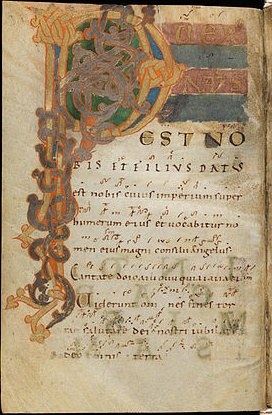 P UER
NATUS
EST NO
BIS ET FILIUS DATUS
est nobis cuius imperium super
humerum eius et uocabitur no
men eius magni consilii angelus
Cantate dno
Uiderunt omnes fines ter
rae salutare dei nostri iubilate
deo omnis terra